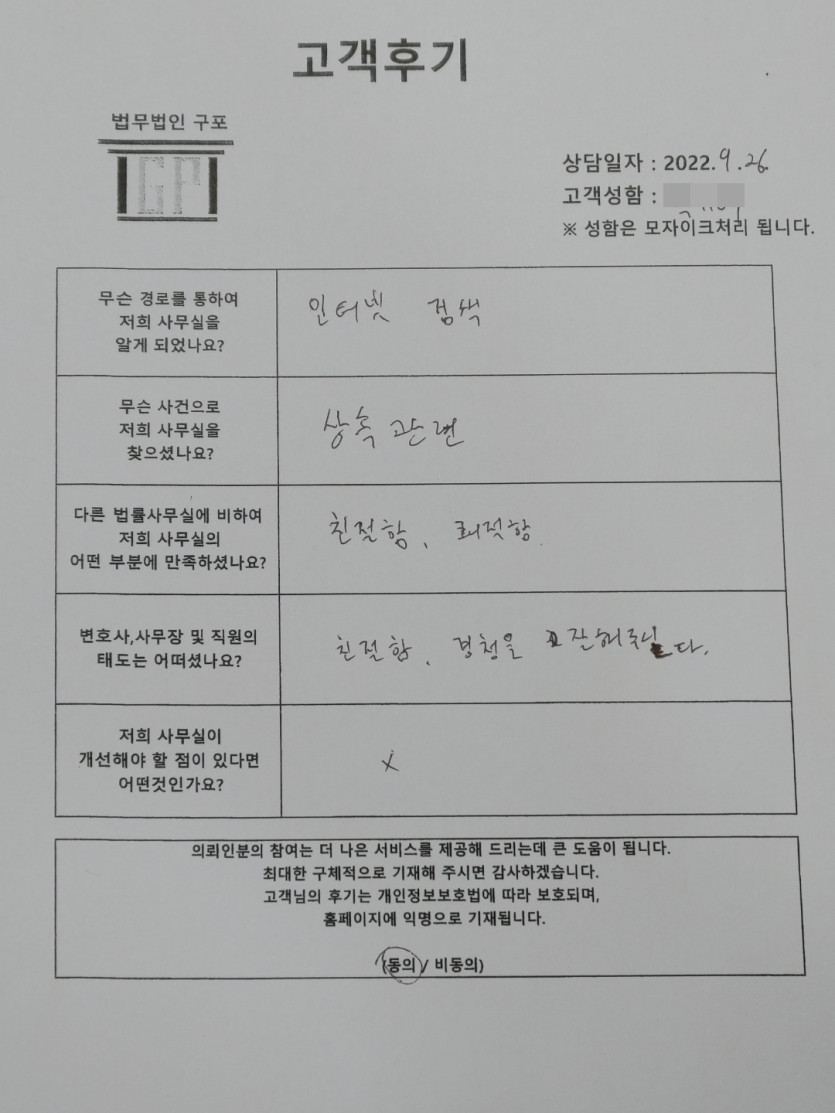 고객후기
법무법인 구포
GP
상담일자 : 2022. 9. 26.
고객성함 :
※ 성함은 모자이크처리 됩니다.
무슨 경로를 통하여
저희 사무실을
알게 되었나요?
인터넷 검색
무슨 사건으로
저희 사무실을
찾으셨나요?
상속 관련
다른 법률사무실에 비하여
저희 사무실의
어떤 부분에 만족하셨나요?
친절함, 쾌적함.
변호사,사무장 및 직원의
태도는 어떠셨나요?
친절함, 경청을 잘해주십니다.
저희 사무실이
개선해야 할 점이 있다면
어떤것인가요?
X
의뢰인분의 참여는 더 나은 서비스를 제공해 드리는데 큰 도움이 됩니다.
최대한 구체적으로 기재해 주시면 감사하겠습니다.
고객님의 후기는 개인정보보호법에 따라 보호되며,
홈페이지에 익명으로 기재됩니다.
(동의 / 비동의)